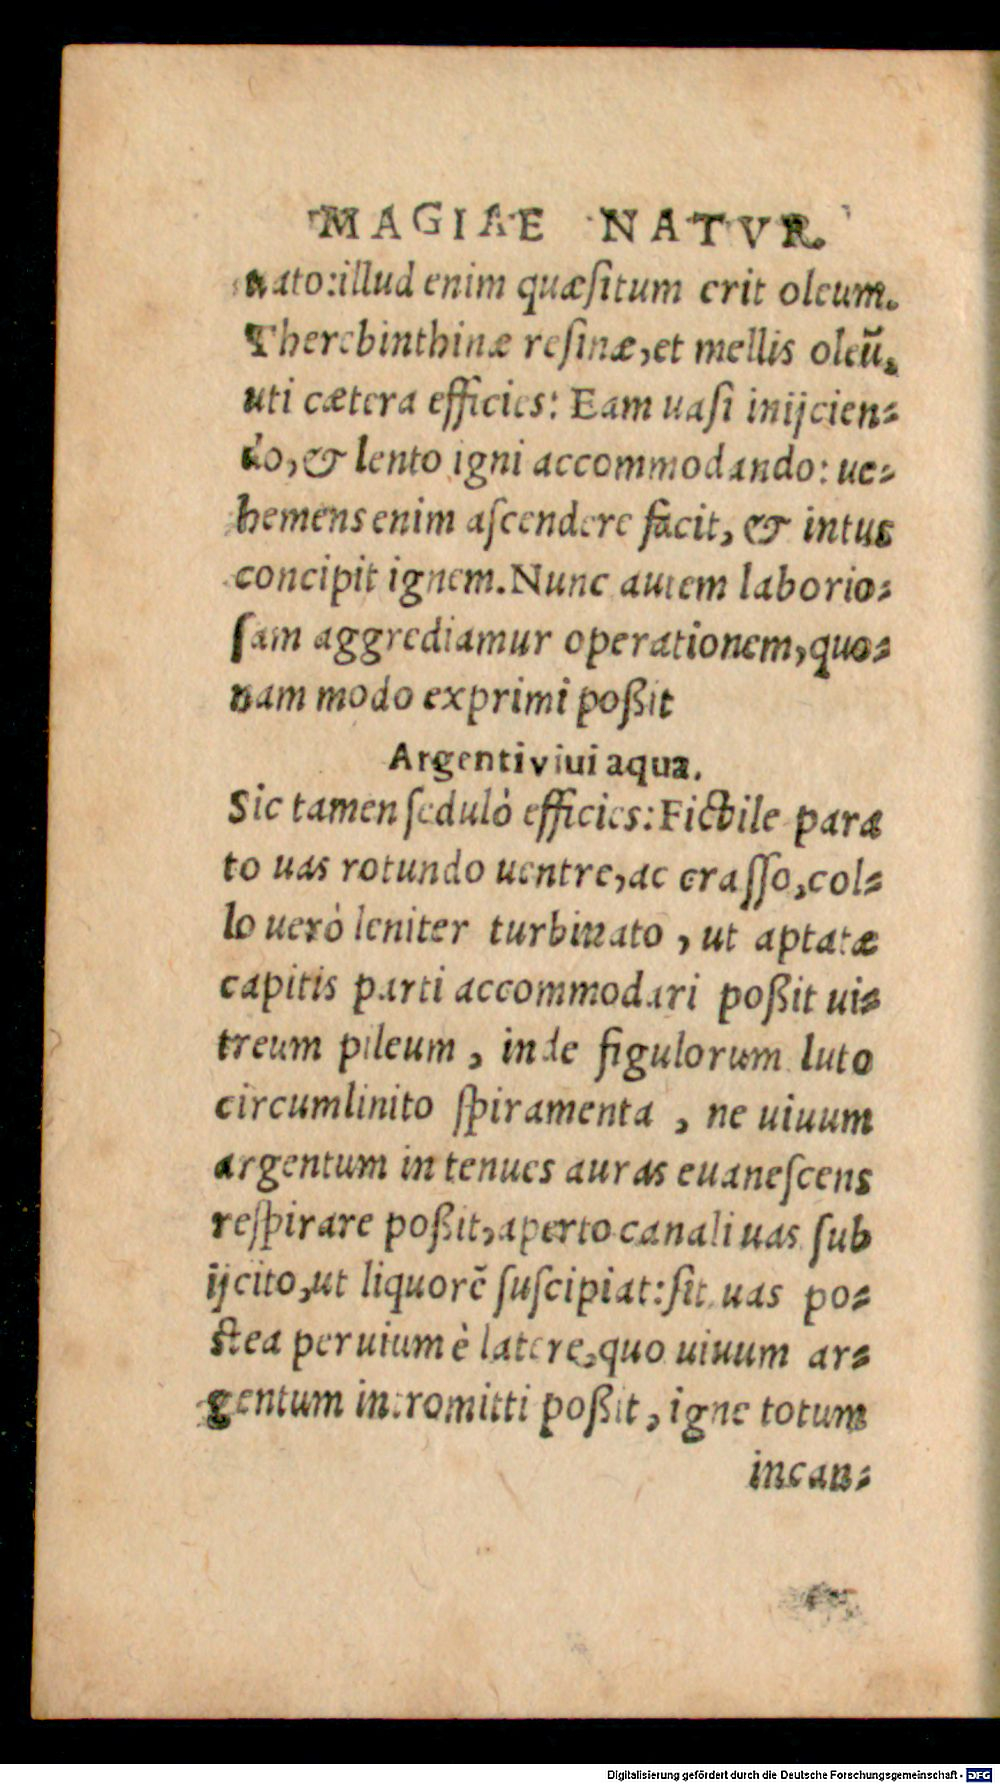 MAGIAE NATVR.
nato:illud enim quæſitum erit oleum.
Therebinthinæ reſinæ,et mellis oleū,
uti cætera efficies: Eam uaſi inijcien-
do,& lento igni accommodando: ue-
hemens enim aſcendere facit, & intus
concipit ignem.Nunc autem laborio-
ſam aggrediamur operationem,quo-
nam modo exprimi poßit
Argenti viui aqua.
Sic tamen ſedulò efficies:Fictile para
to uas rotundo uentre,ac craſſo,col-
lo uerò leniter turbinato , ut aptatæ
capitis parti accommodari poßit ui-
treum pileum , inde figulorum luto
circumlinito ſpiramenta , ne uiuum
argentum in tenues auras euaneſcens
reſpirare poßit,aperto canali uas ſub
ijcito,ut liquorē ſuſcipiat:ſit uas po-
ſtea peruium è latere,quo uiuum ar-
gentum intromitti poßit , igne totum
incan-
Digitalisierung gefördert durch die Deutsche Forschungsgemeinschaft - DFG